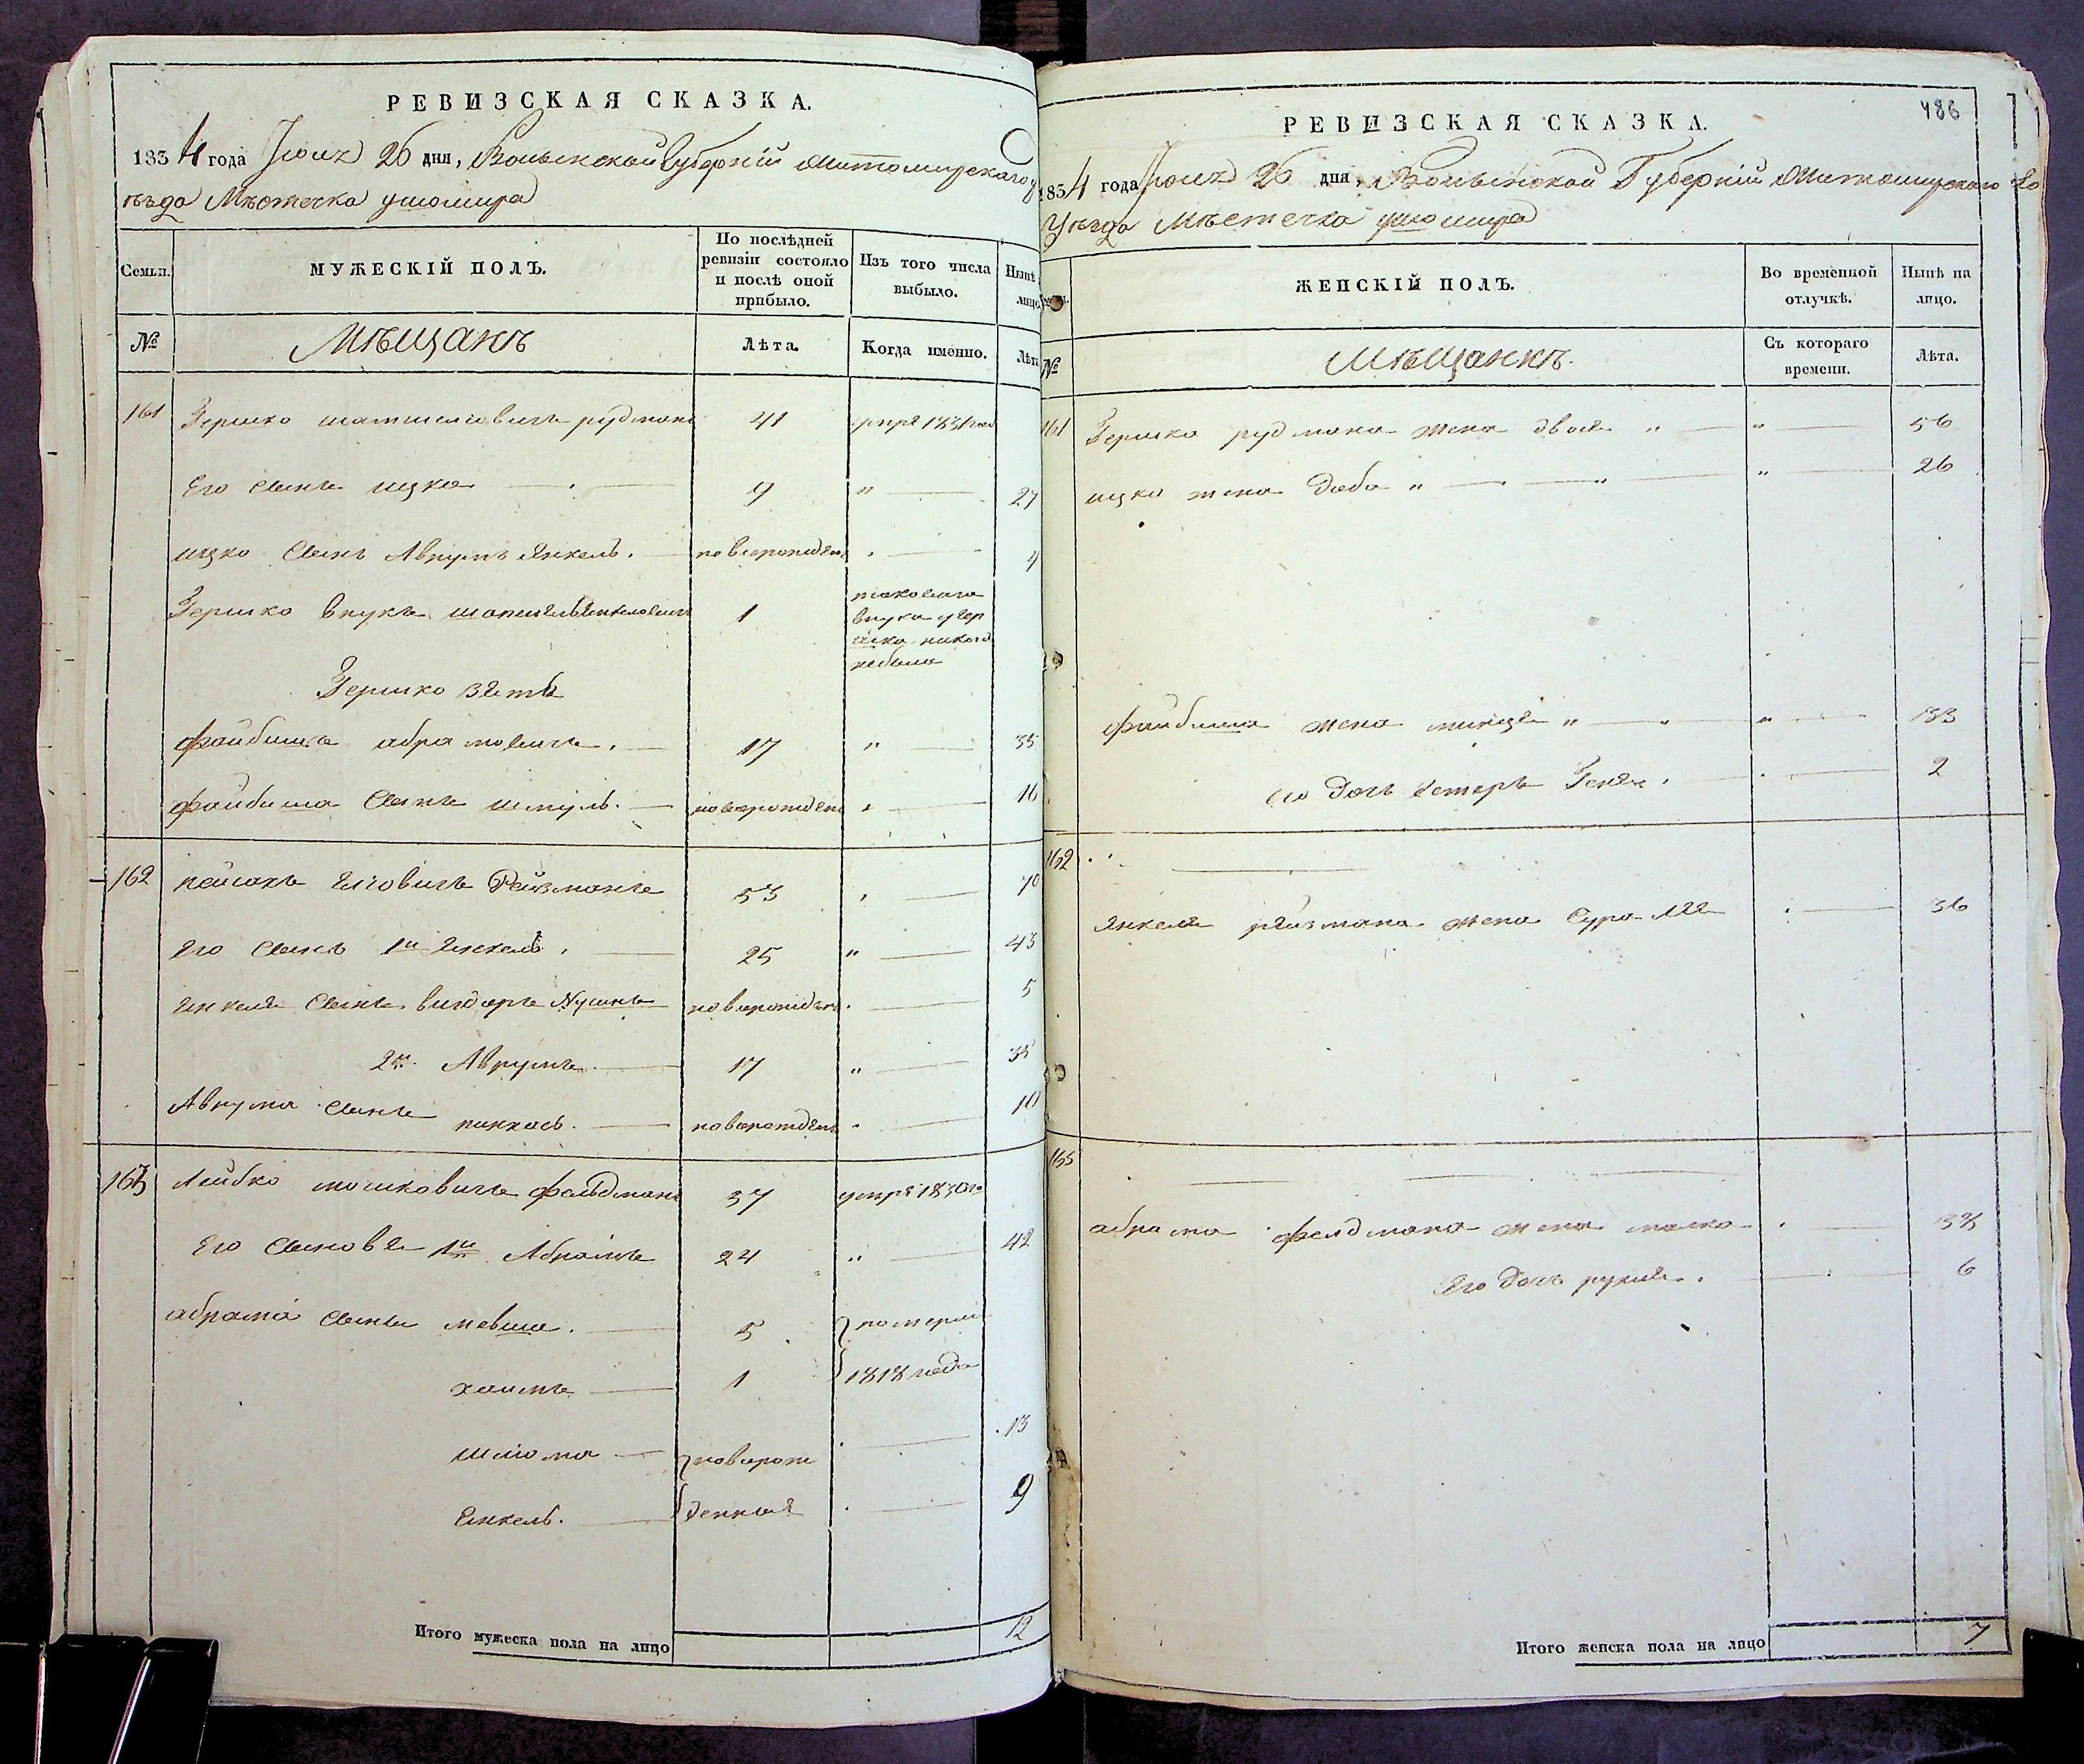 РЕВИЗСКАЯ СКАЗКА.
1834 года Июня 26 дня, Волынской Губернии Житомирского у
езда Местечка Ушомира
Семьи.
МУЖЕСКІЙ ПОЛЪ.
По послѣдней ревизіи состояло и послѣ оной прибыло.
Изъ того числа выбыло.
Нынѣ лицо
№
Мѣщанъ
Лѣта.
Когда именно.
Лѣта
161 Гершко рудманъ 41 умре 1831 год
Его Сынъ ицко 9 " 27
ицко Сынъ Аврумъ Янкель. новорожден 4
Гершко внукъ 1 внука у гершка небыло
Гершко зять
файбишъ абрамовичъ. 17 " 35
файбиша Сынъ шмуль. новорожден 16
162 пейсахъ Рейзманъ 53 70
Его Сынъ 1й Янкель. 25 " 43
Янкеля Сынъ Нусинъ новорожден 5
2й Аврумъ 17 " 35
Аврума Сынъ пинхасъ. новорожден 10
163 Лейбко мошковичъ фельдманъ 37 умре 1830го
Его Сыновья 1й Абрамъ 24 " 42
абрама Сыны мевша. 5 померли
хаимъ 1 1818 года
шліома новорож 13
Янкель. денные 9
Итого мужеска пола на лицо 12
486
РЕВИЗСКАЯ СКАЗКА.
1834 года Июня 26 дня, Волынской Губерніи Житомирского
Уезда Местечка Ушомира
ЖЕНСКІЙ ПОЛЪ.
Во временной отлучкѣ.
Нынѣ на лицо.
№
Мѣщанкъ.
Съ котораго времени.
Лѣта.
161 Гершка рудмана жена двося " " 56
ицка жена доба " " " 26
файбиша жена " " " 33
его дочь естеръ Геня. 2
162
Янкеля рейзмана жена Сура лея 36
163
абрама фелдмана жена малка
Его дочь рухля. 6
Итого женска пола на лицо 7